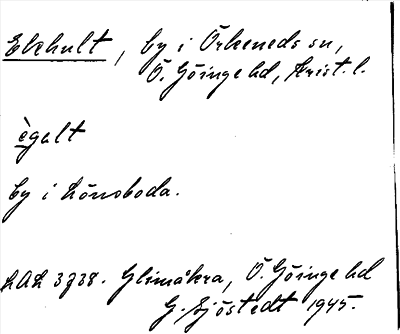 Ekhult, by i Örkeneds sn,
Ö. Göinge hd, Krist. l.
ègalt
by i Lönsboda.
LAL 3738. Glimåkra, Ö. Göinge hd
G. Sjöstedt 1945.